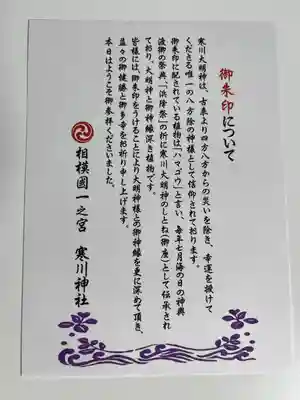 御朱印について
寒川大明神は、古来より四方八方からの災いを除き、幸運を授けて
くださる唯一の八方除の神様として信仰されて おります。
御朱印に配されている植物は「ハマゴウ」と言い、毎年七月海の日の神輿
渡御の祭典「浜降祭」の折に寒川大明神のしとね(御座)として伝承され
ており、大明神と御神縁深き植物です。
皆様には、御朱印をうけることにより大明神様との御神縁を更に深めて頂き、
益々の御健勝と御多幸をお祈り申し上げます。
本日はようこそ御参拝くださいました。
相模國一之宮 寒川神社